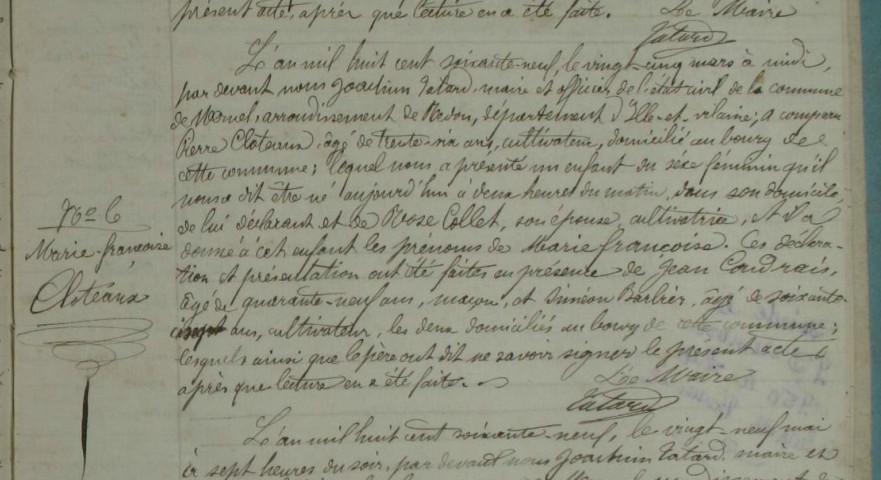 présent acte, après que lecture en a été faite. Le Maire
Tatard
L'an mil huit cent soixante-neuf, le vingt-cinq mars à midi,
par devant nous Joachim Tatard, maire et officier de l'état civil de la commune
de arrondissement de Redon, département d'Ille-et-vilaine, a comparu
Pierre Cloteaux, âgé de trente-six ans, cultivateur, domicilié au bourg de
cette commune; lequel nous a présenté un enfant du sexe féminin qu'il
nous a dit être né aujourd'hui à deux heures du matin, dans son domicile,
de lui déclarant et de Rose Collet, son épouse, cultivatrice, et il a
donné à cet enfant les prénoms de Marie françoise. Ces déclara-
tion et présentation ont été faites en présence de Jean Coudrais,
âgé de quarante-neuf ans, maçon, et Siméon Barbier, âgé de soixante-
ans, cultivateur, les deux domiciliés au bourg de cette commune;
lesquels ainsi que le père ont dit ne savoir signer le présent acte
après que lecture en a été faite.
Le Maire
Tatard
No 6
Marie-françoise
Cloteaux
L'an mil huit cent soixante-neuf, le vingt-neuf mai
à sept heures du soir, par devant nous Joachim Tatard, maire et